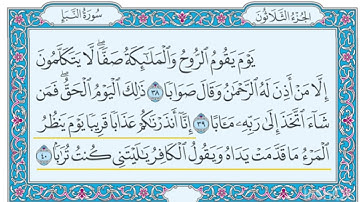 سُورَةُ النَّبَإِ
الجُزْءُ الثَّلَاثُونَ
يَوْمَ يَقُومُ الرُّوحُ وَالْمَلَٰٓئِكَةُ صَفًّا ۖ لَّا يَتَكَلَّمُونَ
إِلَّا مَنْ أَذِنَ لَهُ الرَّحْمَٰنُ وَقَالَ صَوَابًا ٣٨ ذَٰلِكَ الْيَوْمُ الْحَقُّ ۖ فَمَن
شَآءَ اتَّخَذَ إِلَىٰ رَبِّهِۦ مَـَٔابًا ٣٩ إِنَّآ أَنذَرْنَٰكُمْ عَذَابًا قَرِيبًا يَوْمَ يَنظُرُ
الْمَرْءُ مَا قَدَّمَتْ يَدَاهُ وَيَقُولُ الْكَافِرُ يَٰلَيْتَنِي كُنتُ تُرَٰبًۢا ٤٠